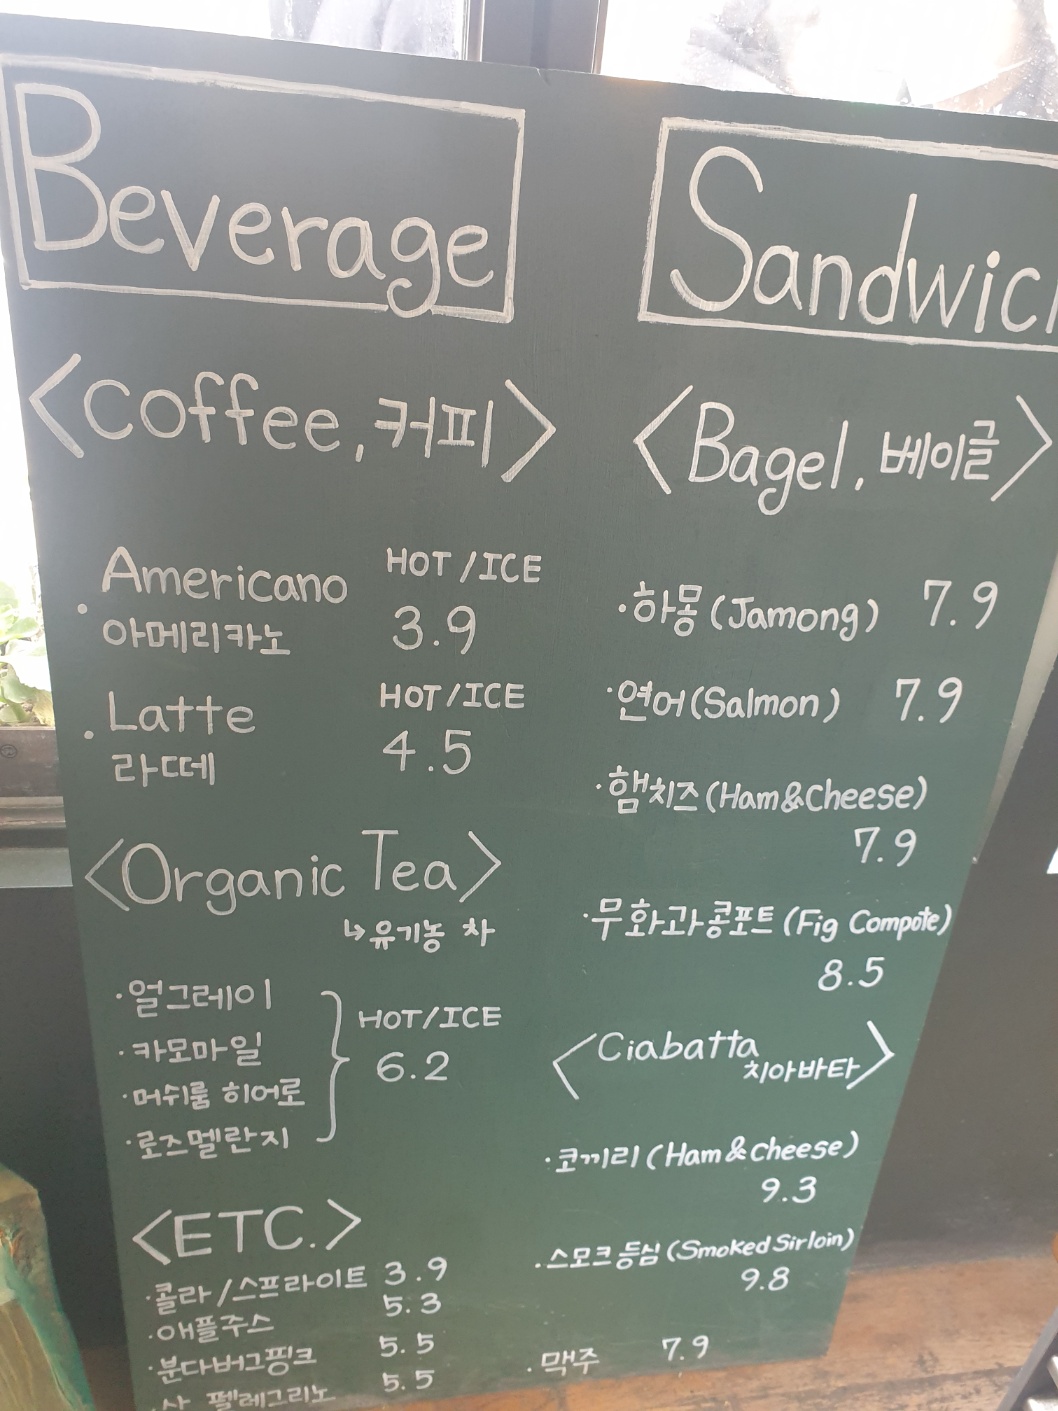 Beverage
<Coffee, 커피>
Americano HOT/ICE
· 아메리카노 3.9
Latte HOT/ICE
· 라떼 4.5
<Organic Tea>
↳유기농 차
·얼그레이
·카모마일
·머쉬룸 히어로
·로즈멜란지
HOT/ICE
6.2
<ETC.>
·콜라/스프라이트 3.9
·애플주스 5.3
·분다버그핑크 5.5
·산 펠레그리노 5.5
Sandwich
<Bagel, 베이글>
·하몽(Jamong) 7.9
·연어(Salmon) 7.9
·햄치즈(Ham&Cheese)
7.9
·무화과콩포트(Fig Compote)
8.5
<Ciabatta
치아바타>
·코끼리(Ham&cheese)
9.3
·스모크등심(Smoked Sirloin)
9.8
·맥주 7.9